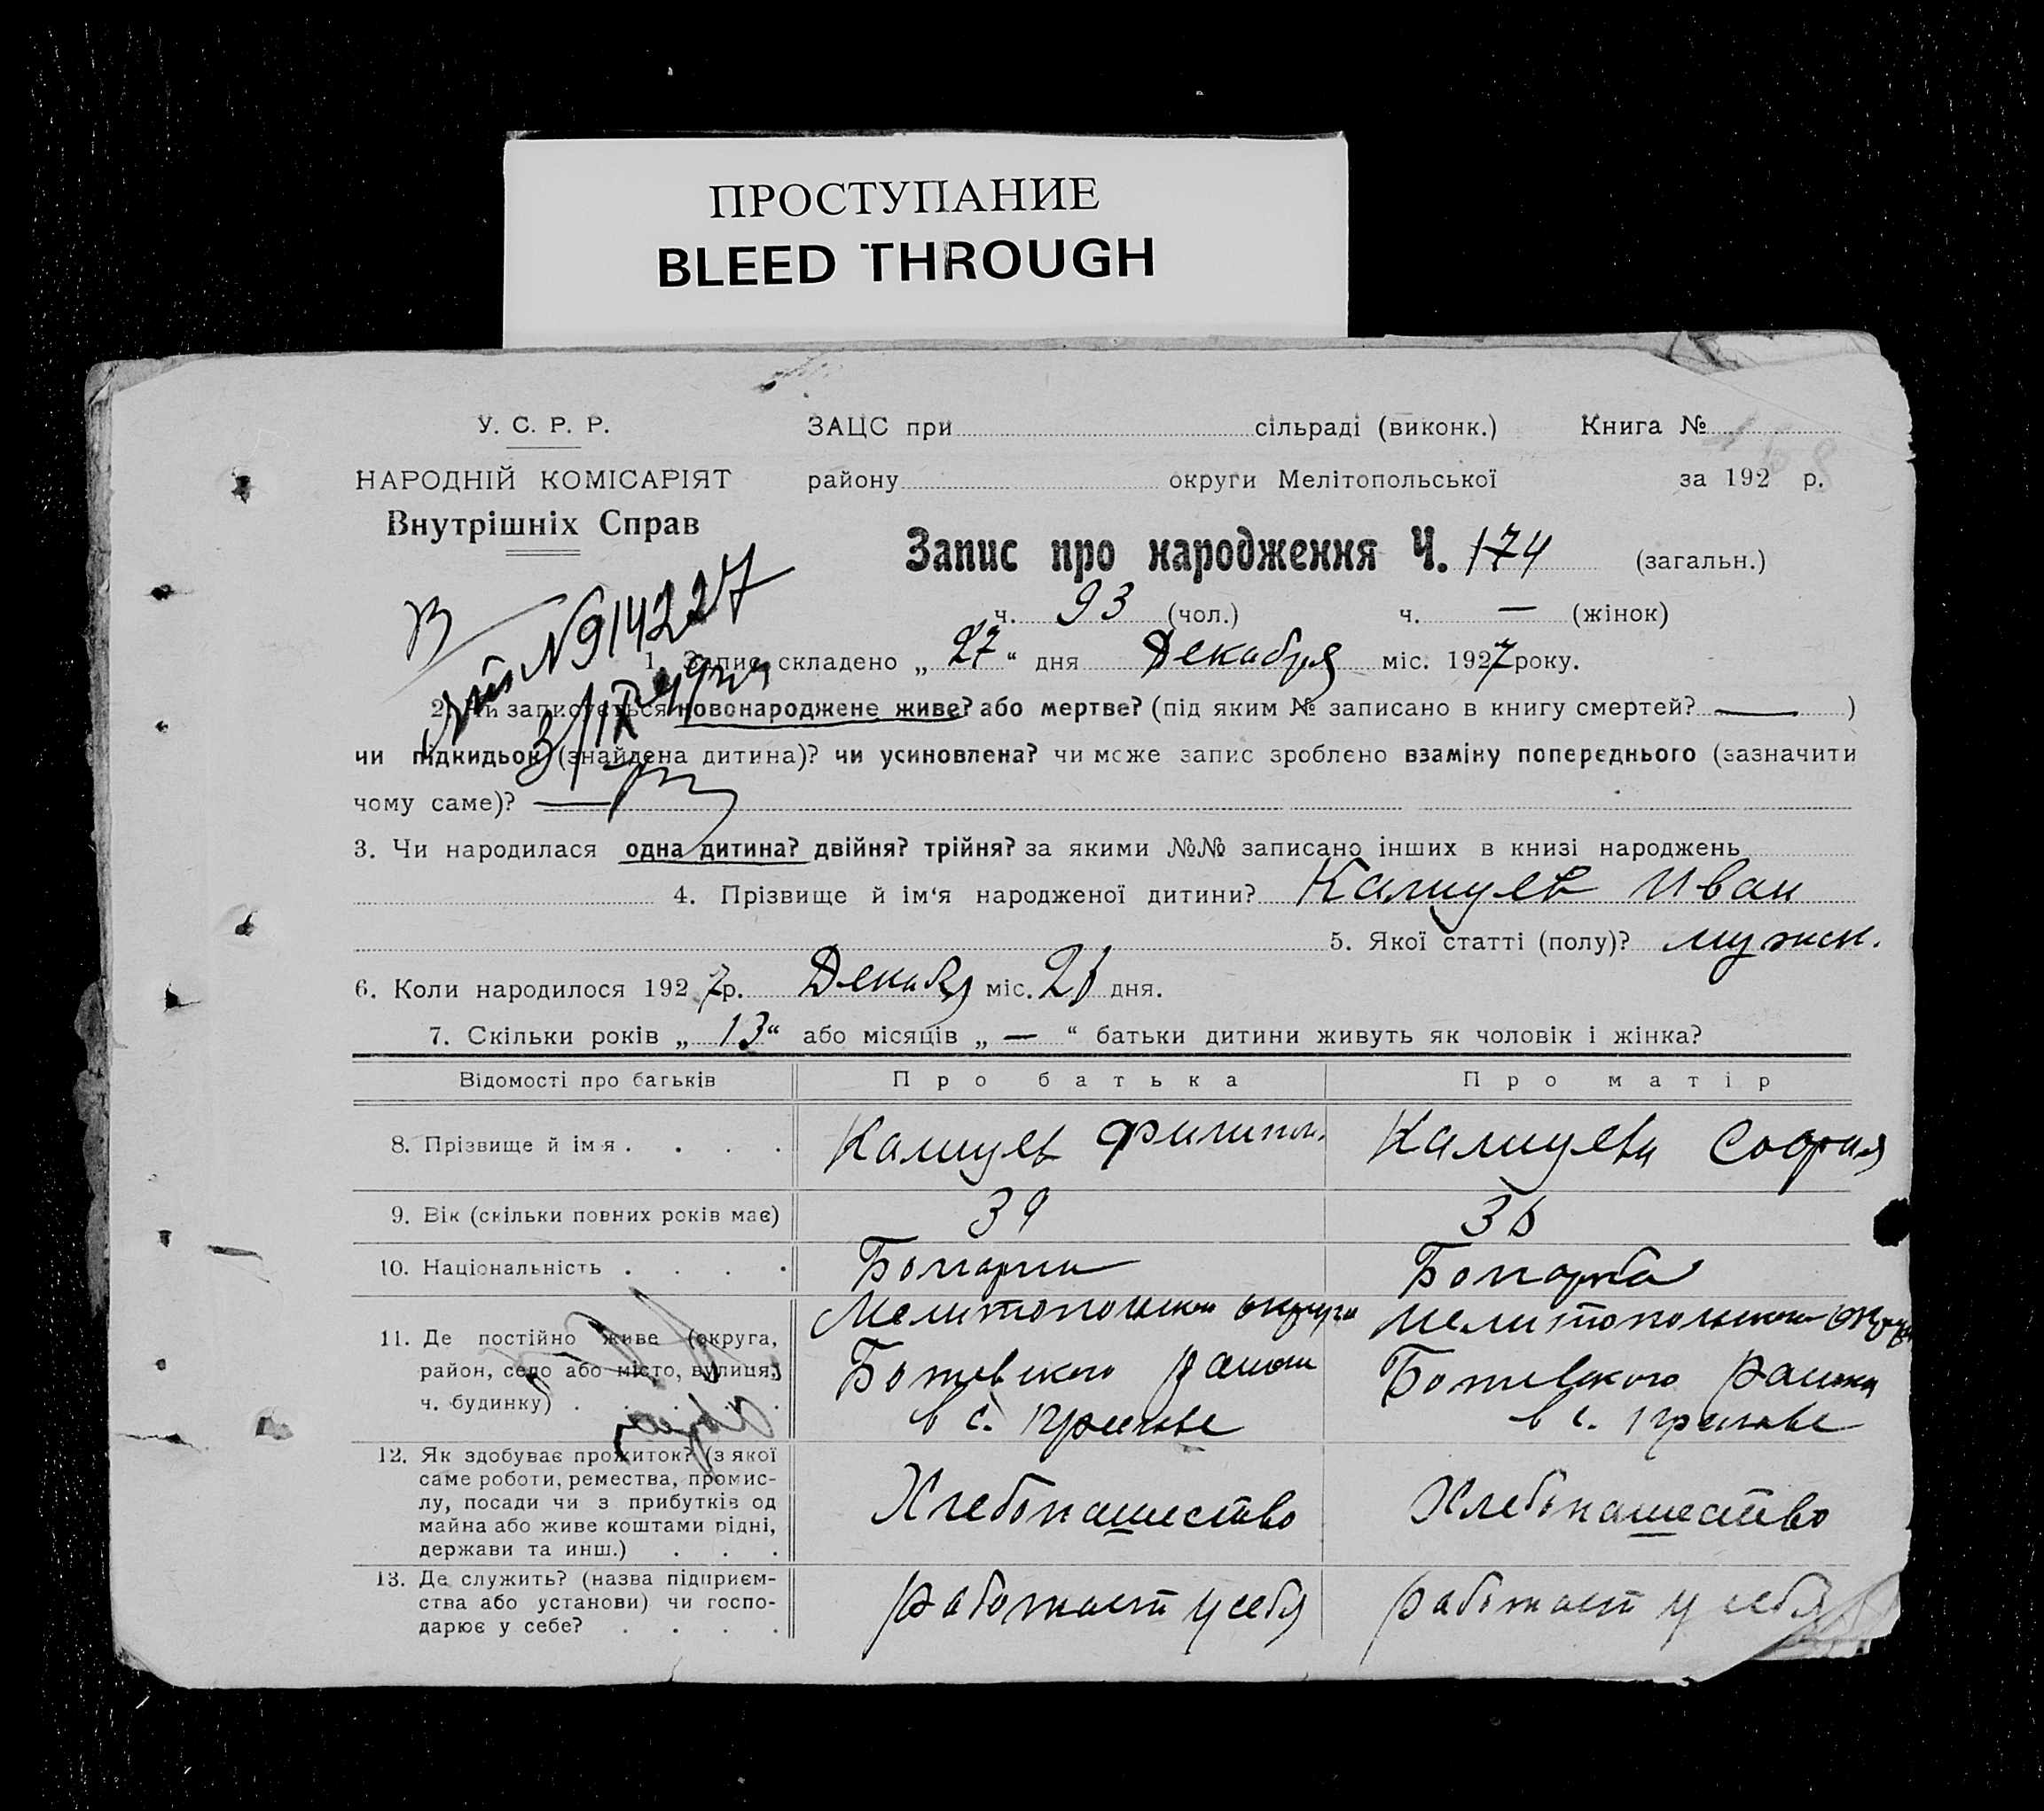 ПРОСТУПАНИЕ
BLEED THROUGH
У. С. Р. Р.
НАРОДНІЙ КОМІСАРІЯТ
Внутрішніх Справ
ЗАЦС при сільраді (виконк.) Книга №
району округи Мелітопольської за 192 р.
Запис про народження Ч. 174 (загальн.)
ч. 93 (чол.) ч. — (жінок)
№ 914227
1. Запис складено „ 27 “ дня Декабря міс. 1927 року.
2. записується новонароджене живе? або мертве? (під яким № записано в книгу смертей? — )
чи підкидьок (знайдена дитина)? чи усиновлена? чи може запис зроблено взаміну попереднього (зазначити
чому саме)? —
3. Чи народилася одна дитина? двійня? трійня? за якими №№ записано інших в книзі народжень
4. Прізвище й ім‘я народженої дитини? Калчуев Иван
5. Якої статті (полу)? мужск.
6. Коли народилося 1927 р. Декабр міс. 21 дня.
7. Скільки років „ 13 “ або місяців „ — “ батьки дитини живуть як чоловік і жінка?
Відомості про батьків Про батька Про матір
8. Прізвище й імя . . . . Филипп. София
9. Вік (скільки повних років має) 39 36
10. Національність . . . . Болгарин Болгарка
11. Де постійно живе (округа,
район, село або місто, вулиця,
ч. будинку) . . . . .
Мелитопольской округи
Ботевского района
в с.
Мелитопольской округи
Ботевского района
в с.
12. Як здобуває прожиток? (з якої
саме роботи, ремества, промис-
лу, посади чи з прибутків од
майна або живе коштами рідні,
держави та инш.) . . .
Хлебопашество Хлебопашество
13. Де служить? (назва підприєм-
ства або установи) чи госпо-
дарює у себе? . . . .
работает у себя работает у себя